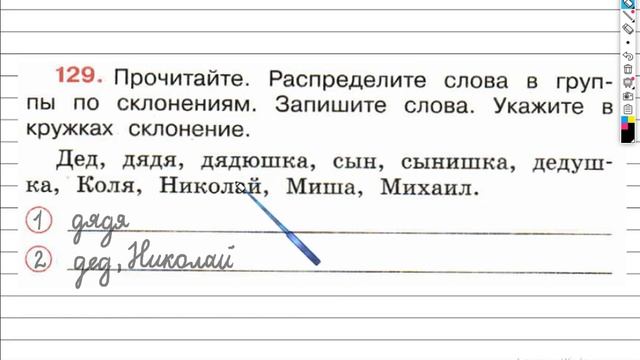 129. Прочитайте. Распределите слова в груп-
пы по склонениям. Запишите слова. Укажите в
кружках склонение.
Дед, дядя, дядюшка, сын, сынишка, дедуш-
ка, Коля, Николай, Миша, Михаил.
1 дядя
2 дед, Николай